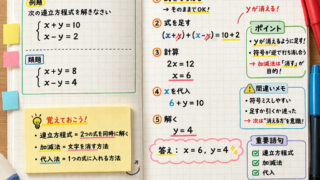 例題
次の連立方程式を解きなさい
x + y = 10
x - y = 2
類題
x + y = 8
x - y = 4
覚えておこう!
・連立方程式 = 2つの式を同時に解く
・加減法 = 文字を消す方法
・代入法 = 1つの式に入れる方法
→ そのままOK!
② 式を足す
(x+y)+(x-y)=10+2
③ 計算
2x = 12
x = 6
④ xを代入
6 + y = 10
⑤ 解く
y = 4
答え: x = 6, y = 4
yが消える!
ポイント
・yが消えるように足す!
・符号が逆で打ち消し合う
→ 加減法は「消す」が
目的!
間違いメモ
・符号ミスしやすい
・足すか引くか迷った
→ 次は“消える方”を意識!
重要語句
連立方程式
加減法
代入法